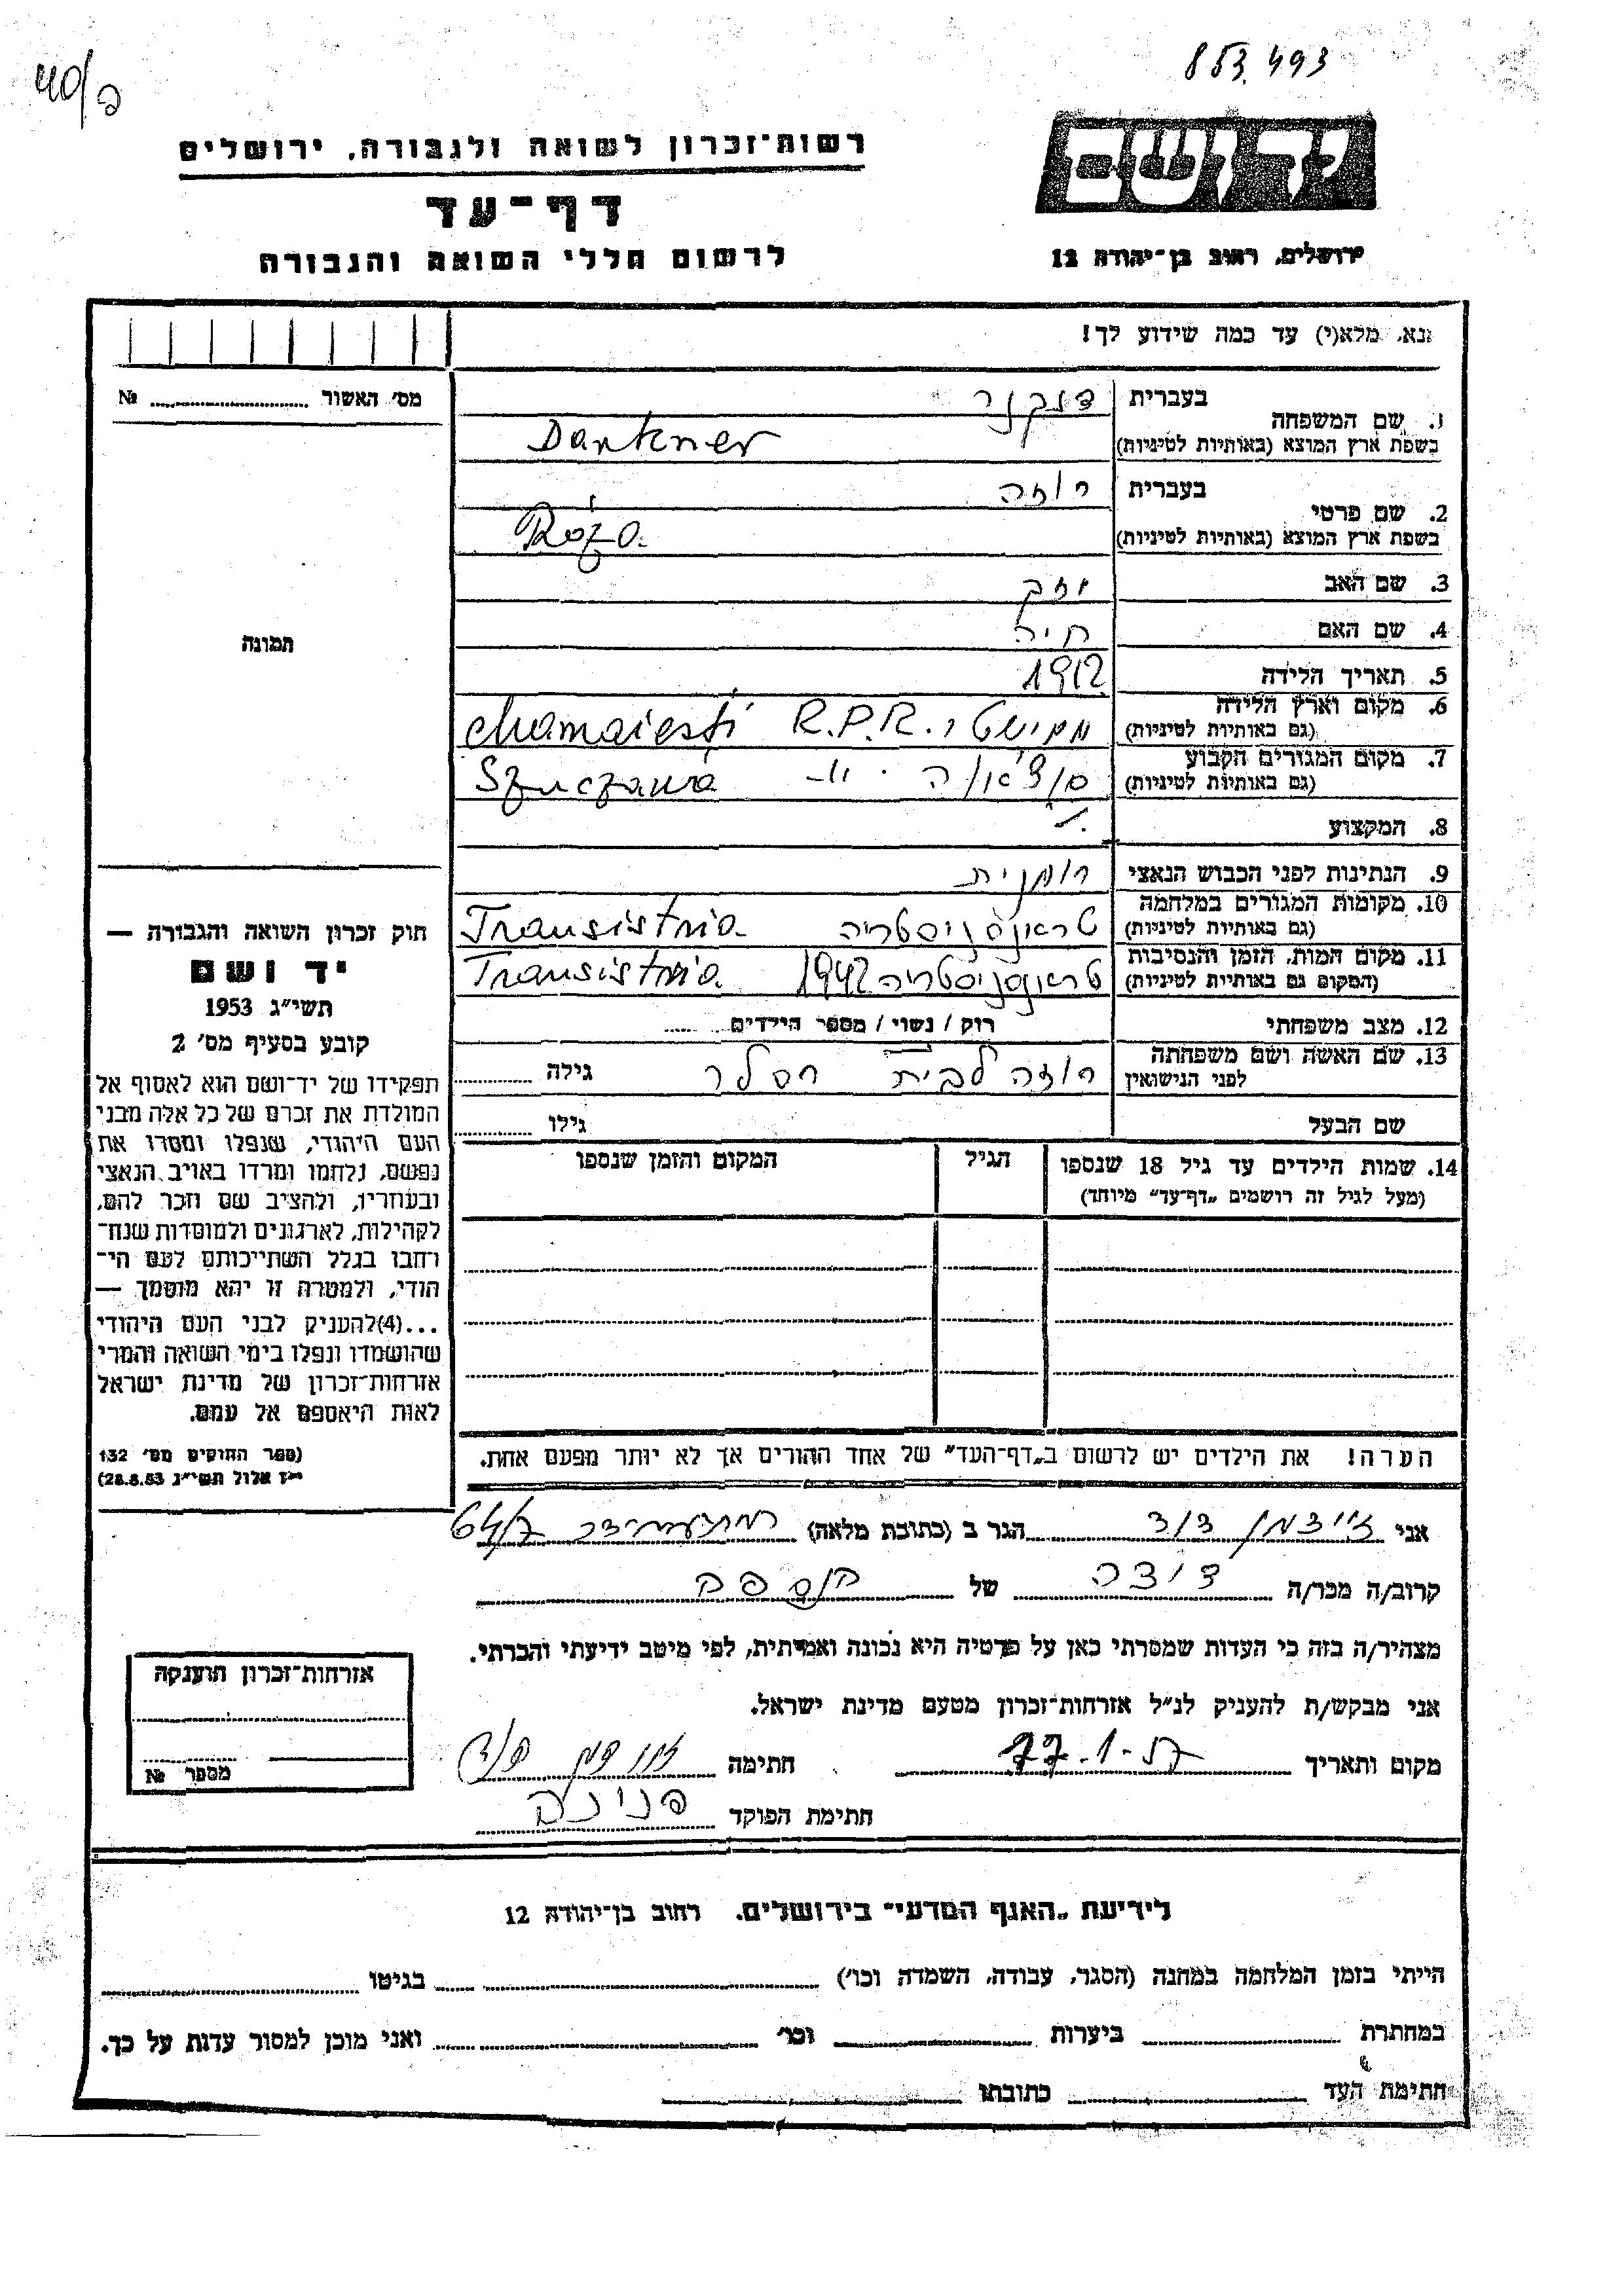 853.493
40/פ
רשות־זכרון לשואה ולגבורה. ירושלים
דף־עד
לרשום חללי השואה והגבורה
ידושם
ירושלים, רחוב בן־יהודה 12
נא, מלא(י) עד כמה שידוע לך!
מס׳ האשור № ........
תמונה
1. שם המשפחה בעברית דנקנר
בשפת ארץ המוצא (באותיות לטיניות) Dankner
2. שם פרטי בעברית רוזה
בשפת ארץ המוצא (באותיות לטיניות) Róza
3. שם האב יזק
4. שם האם חיה
5. תאריך הלידה 1912
6. מקום וארץ הלידה
(גם באותיות לטיניות) R.P.R. chamaiesti
7. מקום המגורים הקבוע
(גם באותיות לטיניות) Szuczawa
8. המקצוע
9. הנתינות לפני הכבוש הנאצי רומנית
10. מקומות המגורים במלחמה
(גם באותיות לטיניות) טראנסניסטריה Transistria
11. מקום המות, הזמן והנסיבות
(המקום גם באותיות לטיניות) טראנסניסטריה 1942 Transistria
12. מצב משפחתי רוק / נשוי / מספר הילדים ......
13. שם האשה ושם משפחתה
לפני הנישואין רוזה לבית רסלר גילה ........
שם הבעל גילו ........
14. שמות הילדים עד גיל 18 שנספו
(מעל לגיל זה רושמים „דף־עד״ מיוחד)
הגיל
המקום והזמן שנספו
חוק זכרון השואה והגבורה —
יד ושם
תשי״ג 1953
קובע בסעיף מס׳ 2
תפקידו של יד־ושם הוא לאסוף אל
המולדת את זכרם של כל אלה מבני
העם היהודי, שנפלו ומסרו את
נפשם, נלחמו ומרדו באויב הנאצי
ובעוזריו, ולהציב שם וזכר להם,
לקהילות, לארגונים ולמוסדות שנח־
רחבו בגלל השתייכותם לעם הי־
הודי, ולמטרה זו יהא מוסמך —
...(4)להעניק לבני העם היהודי
שהושמדו ונפלו בימי השואה והמרי
אזרחות־זכרון של מדינת ישראל
לאות היאספם אל עמם.
(ספר החוקים מס׳ 132
י״ז אלול תשי״ג 28.8.53)
הערה! את הילדים יש לרשום ב„דף־העד״ של אחד ההורים אך לא יותר מפעם אחת.
אני זיידמן דוד הגר ב (כתובת מלאה)
קרוב/ה מכר/ה דודה של
מצהיר/ה בזה כי העדות שמסרתי כאן על פרטיה היא נכונה ואמיתית, לפי מיטב ידיעתי והכרתי.
אני מבקש/ת להעניק לנ״ל אזרחות־זכרון מטעם מדינת ישראל.
מקום ותאריך חתימה
חתימת הפוקד פנינה
אזרחות־זכרון הוענקה
מספר №
לידיעת „האגף המדעי״ בירושלים. רחוב בן־יהודה 12
הייתי בזמן המלחמה במחנה (הסגר, עבודה, השמדה וכו׳) ........ בגיטו ........
במחתרת ........ ביערות ........ וכו׳ ........ ואני מוכן למסור עדות על כך.
חתימת העד ........ כתובתו ........